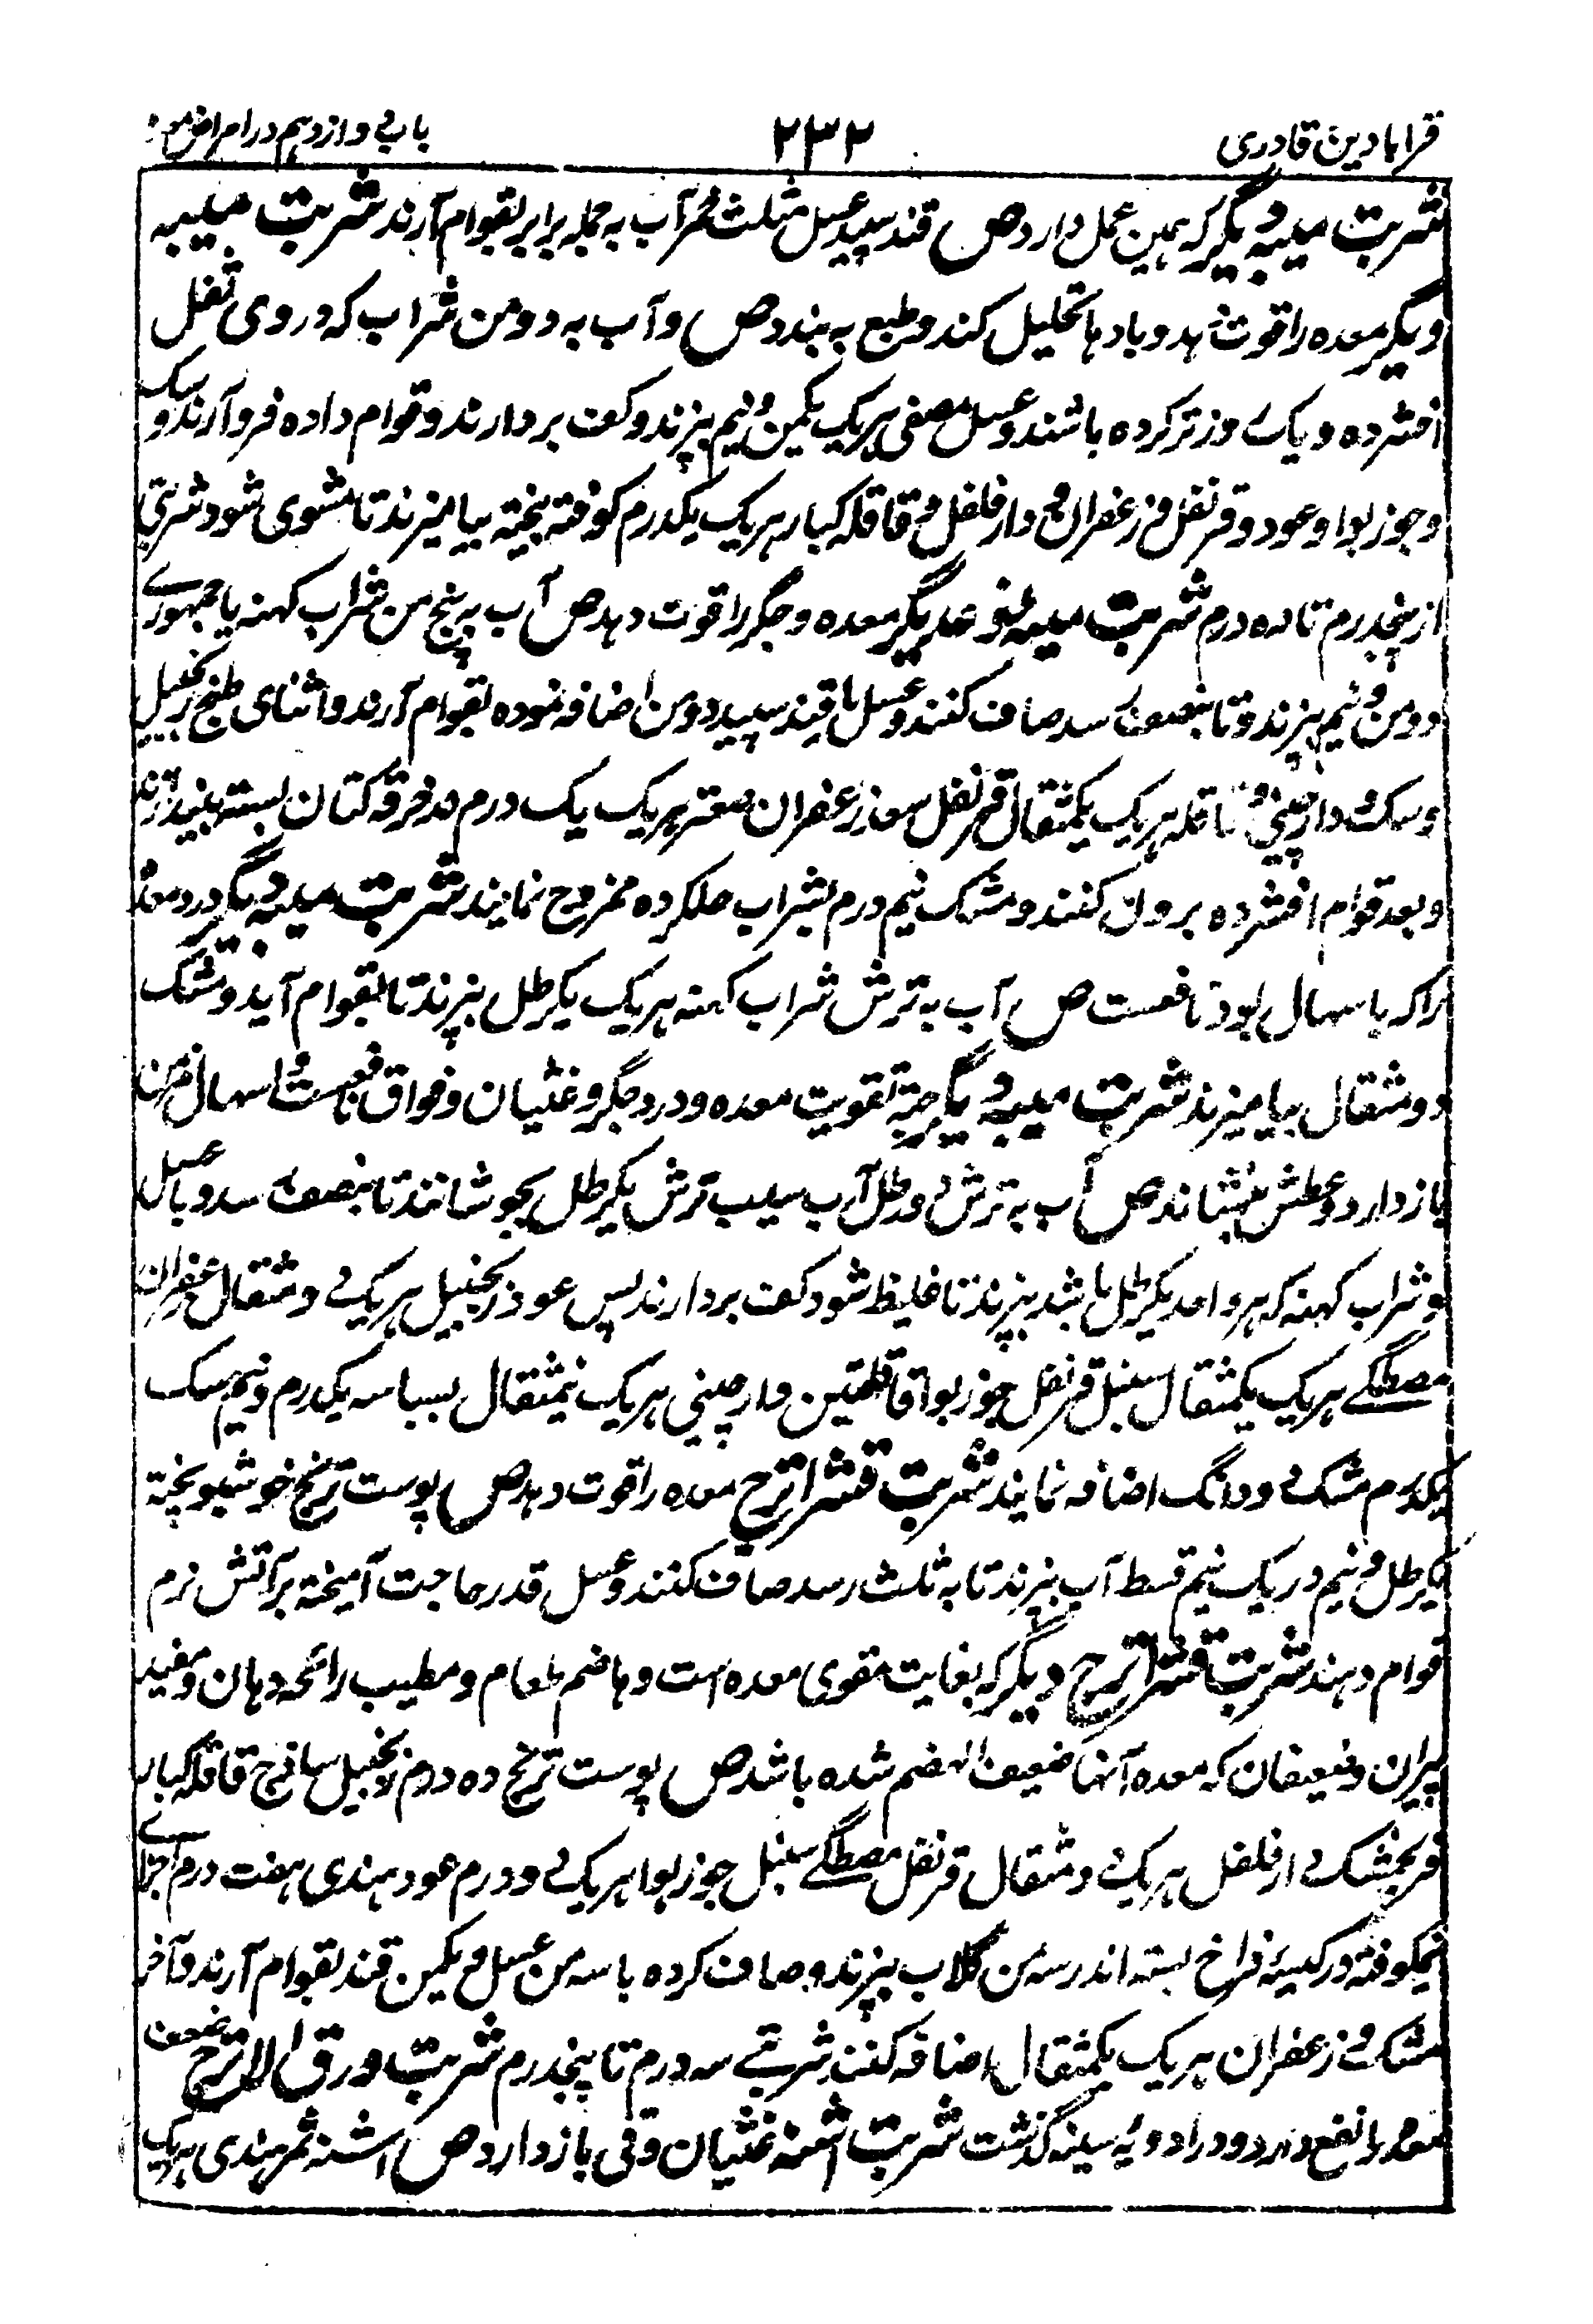 قرابادین قادری ۲۳۲ باب دوازدهم در امراض معده
شربت میبه دیگر که همین عمل دارد ص قند سپید عسل مثلث خمر آب به جمله برابر بقوام آرند شربت میبه
دیگر معده را قوت دهد و بادها تحلیل کند و طبع به بندد ص و آب به دو من شراب که در وی ثفل
افشرده و یک روز تر کرده باشند و عسل مصفی هریک یکمن و نیم بپزند و کف بردارند و قوام داده فرو آرند و سک
و جوز بوا و عود و قرنفل و زعفران و دار فلفل و قاقله کبار هریک یکدرم کوفته بیخته بیامیزند تا مستوی شود شربتی
از پنجدرم تا ده درم شربت میبه بنوعدیگر معده و جگر را قوت دهد ص آب به پنج من شراب کهنه یا جمهوری
دو من و نیم بپزند و تا بنصف رسد صاف کنند و عسل یا قند سپید دو من اضافه نموده بقوام آرند و اثنای طبخ زنجبیل
و سک و دارچینی و قاقله هریک یکمثقال قرنفل زعفران هریک یک درم در خرقه کتان بسته بیندازند
و بعد قوام افشرده برون کنند و مشک نیم درم بشراب حلکرده ممزوج نمایند شربت میبه دیگر درد معده
را که با سهال بود نافعست ص آب به ترش شراب کهنه هریک یکرطل بپزند تا بقوام آید و مشک
دو مثقال بیامیزند شربت میبه دیگر جهة تقویت معده و درد جگر و غثیان و فواق نافعست و اسهال مزمن
باز دارد و عطش بنشاند ص آب به ترش دو رطل آب سیب ترش یکرطل بجوشانند تا بنصف رسد و با عسل
و شراب کهنه که هر واحد یکرطل باشد بپزند تا غلیظ شود کف بردارند پس عود زنجبیل هریک دو مثقال زعفران
مصطگی هریک یکمثقال سنبل قرنفل جوز بوا قاقلتین دارچینی هریک نیمثقال بسباسه یکدرم و نیم سک
یکدرم مشک دو دانگ اضافه نمایند شربت قشر اترج معده را قوت دهد ص پوست ترنج خوشبو پخته
یکرطل و نیم در یک نیم قسط آب بپزند تا به ثلث رسد صاف کنند و عسل قدر حاجت آمیخته بر آتش نرم
قوام دهند شربت قشر اترج دیگر که بغایت مقوی معده است و هاضم طعام و مطیب رائحه دهان و مفید
پیران و ضعیفان که معده آنها ضعیف الهضم شده باشد ص پوست ترنج ده درم زنجبیل ساذج قاقله کبار
فرنجمشک دار فلفل هریک دو مثقال قرنفل مصطگی سنبل جوز بوا هریک دو درم عود هندی هفت درم اجزا
نیمکوفته در کیسه فراخ بسته اندر سه من گلاب بپزند و صاف کرده با سه من عسل و یکمن قند بقوام آرند و آخر
مشک و زعفران هریک یکمثقال اضافه کنند شربتی سه درم تا پنجدرم شربت ورق الاترج ضعف
معده را نفع دارد و در ادویه سینه گذشت شربت اشنه غثیان و قی باز دارد ص اشنه ثمر هندی هریک